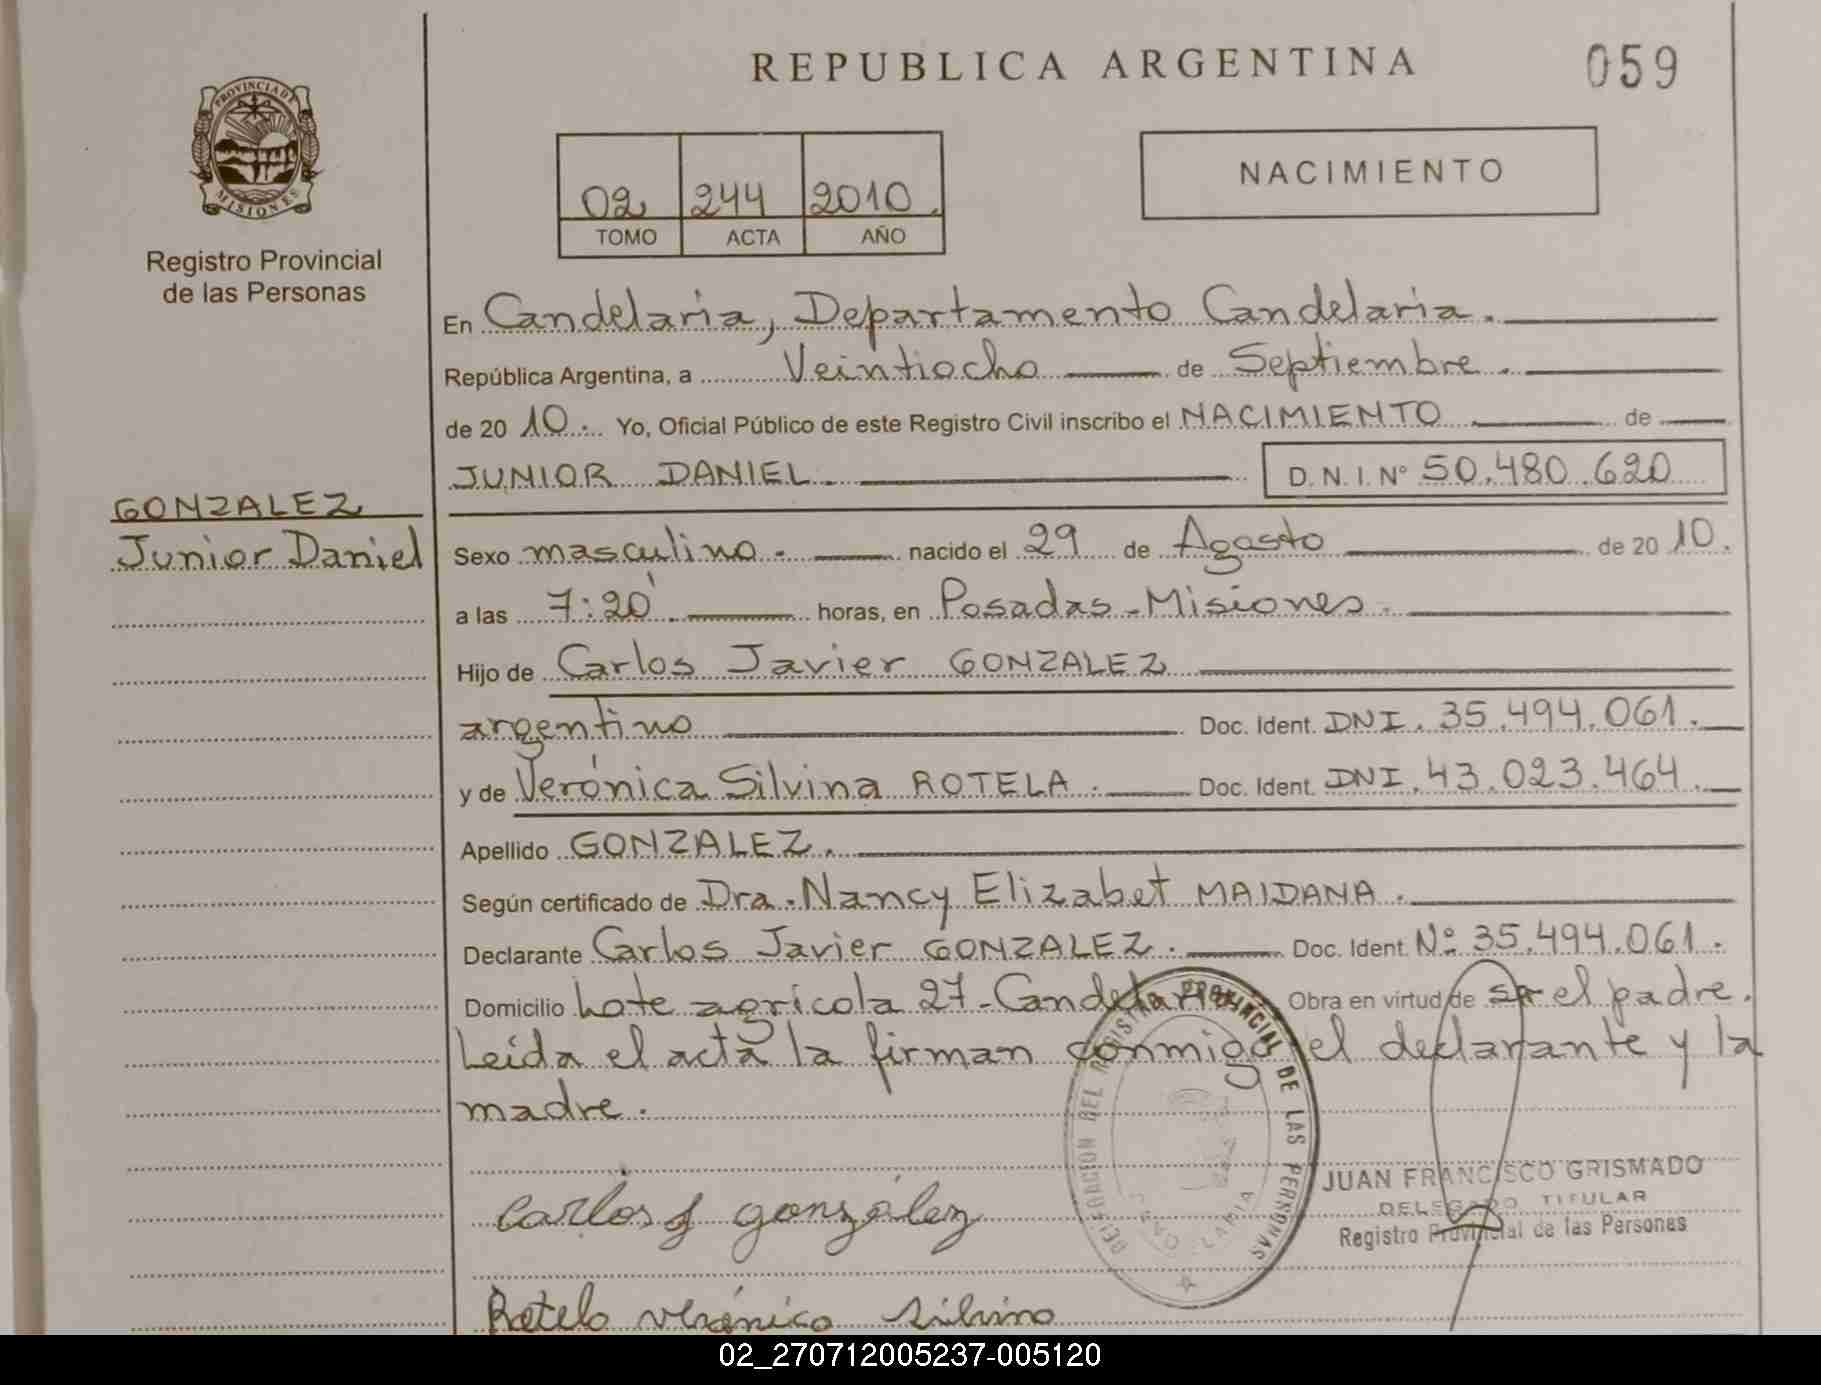 REPUBLICA ARGENTINA
059
PROVINCIA DE
MISIONES
Registro Provincial
de las Personas
NACIMIENTO
02 244 2010.
TOMO ACTA AÑO
En Candelaria, Departamento Candelaria.
República Argentina, a Veintiocho de Septiembre.
de 20 10. Yo, Oficial Público de este Registro Civil inscribo el NACIMIENTO de
JUNIOR DANIEL. D.N.I. Nº 50.480.620
GONZALEZ
Junior Daniel
Sexo masculino. nacido el 29 de Agosto de 20 10.
a las 7:20' horas, en Posadas-Misiones.
Hijo de Carlos Javier GONZALEZ
argentino Doc. Ident. DNI. 35.494.061.
y de Verónica Silvina ROTELA. Doc. Ident. DNI. 43.023.464.
Apellido GONZALEZ.
Según certificado de Dra. Nancy Elizabet MAIDANA.
Declarante Carlos Javier GONZALEZ. Doc. Ident. Nº 35.494.061.
Domicilio Lote agrícola 27-Candelaria Obra en virtud de ser el padre.
Leída el acta la firman conmigo el declarante y la
madre.
DELEGACION DEL REGISTRO PROVINCIAL DE LAS PERSONAS
Carlos J González
JUAN FRANCISCO GRISMADO
DELEGADO TITULAR
Registro Provincial de las Personas
Rotela Verónica Silvina
02_270712005237-005120